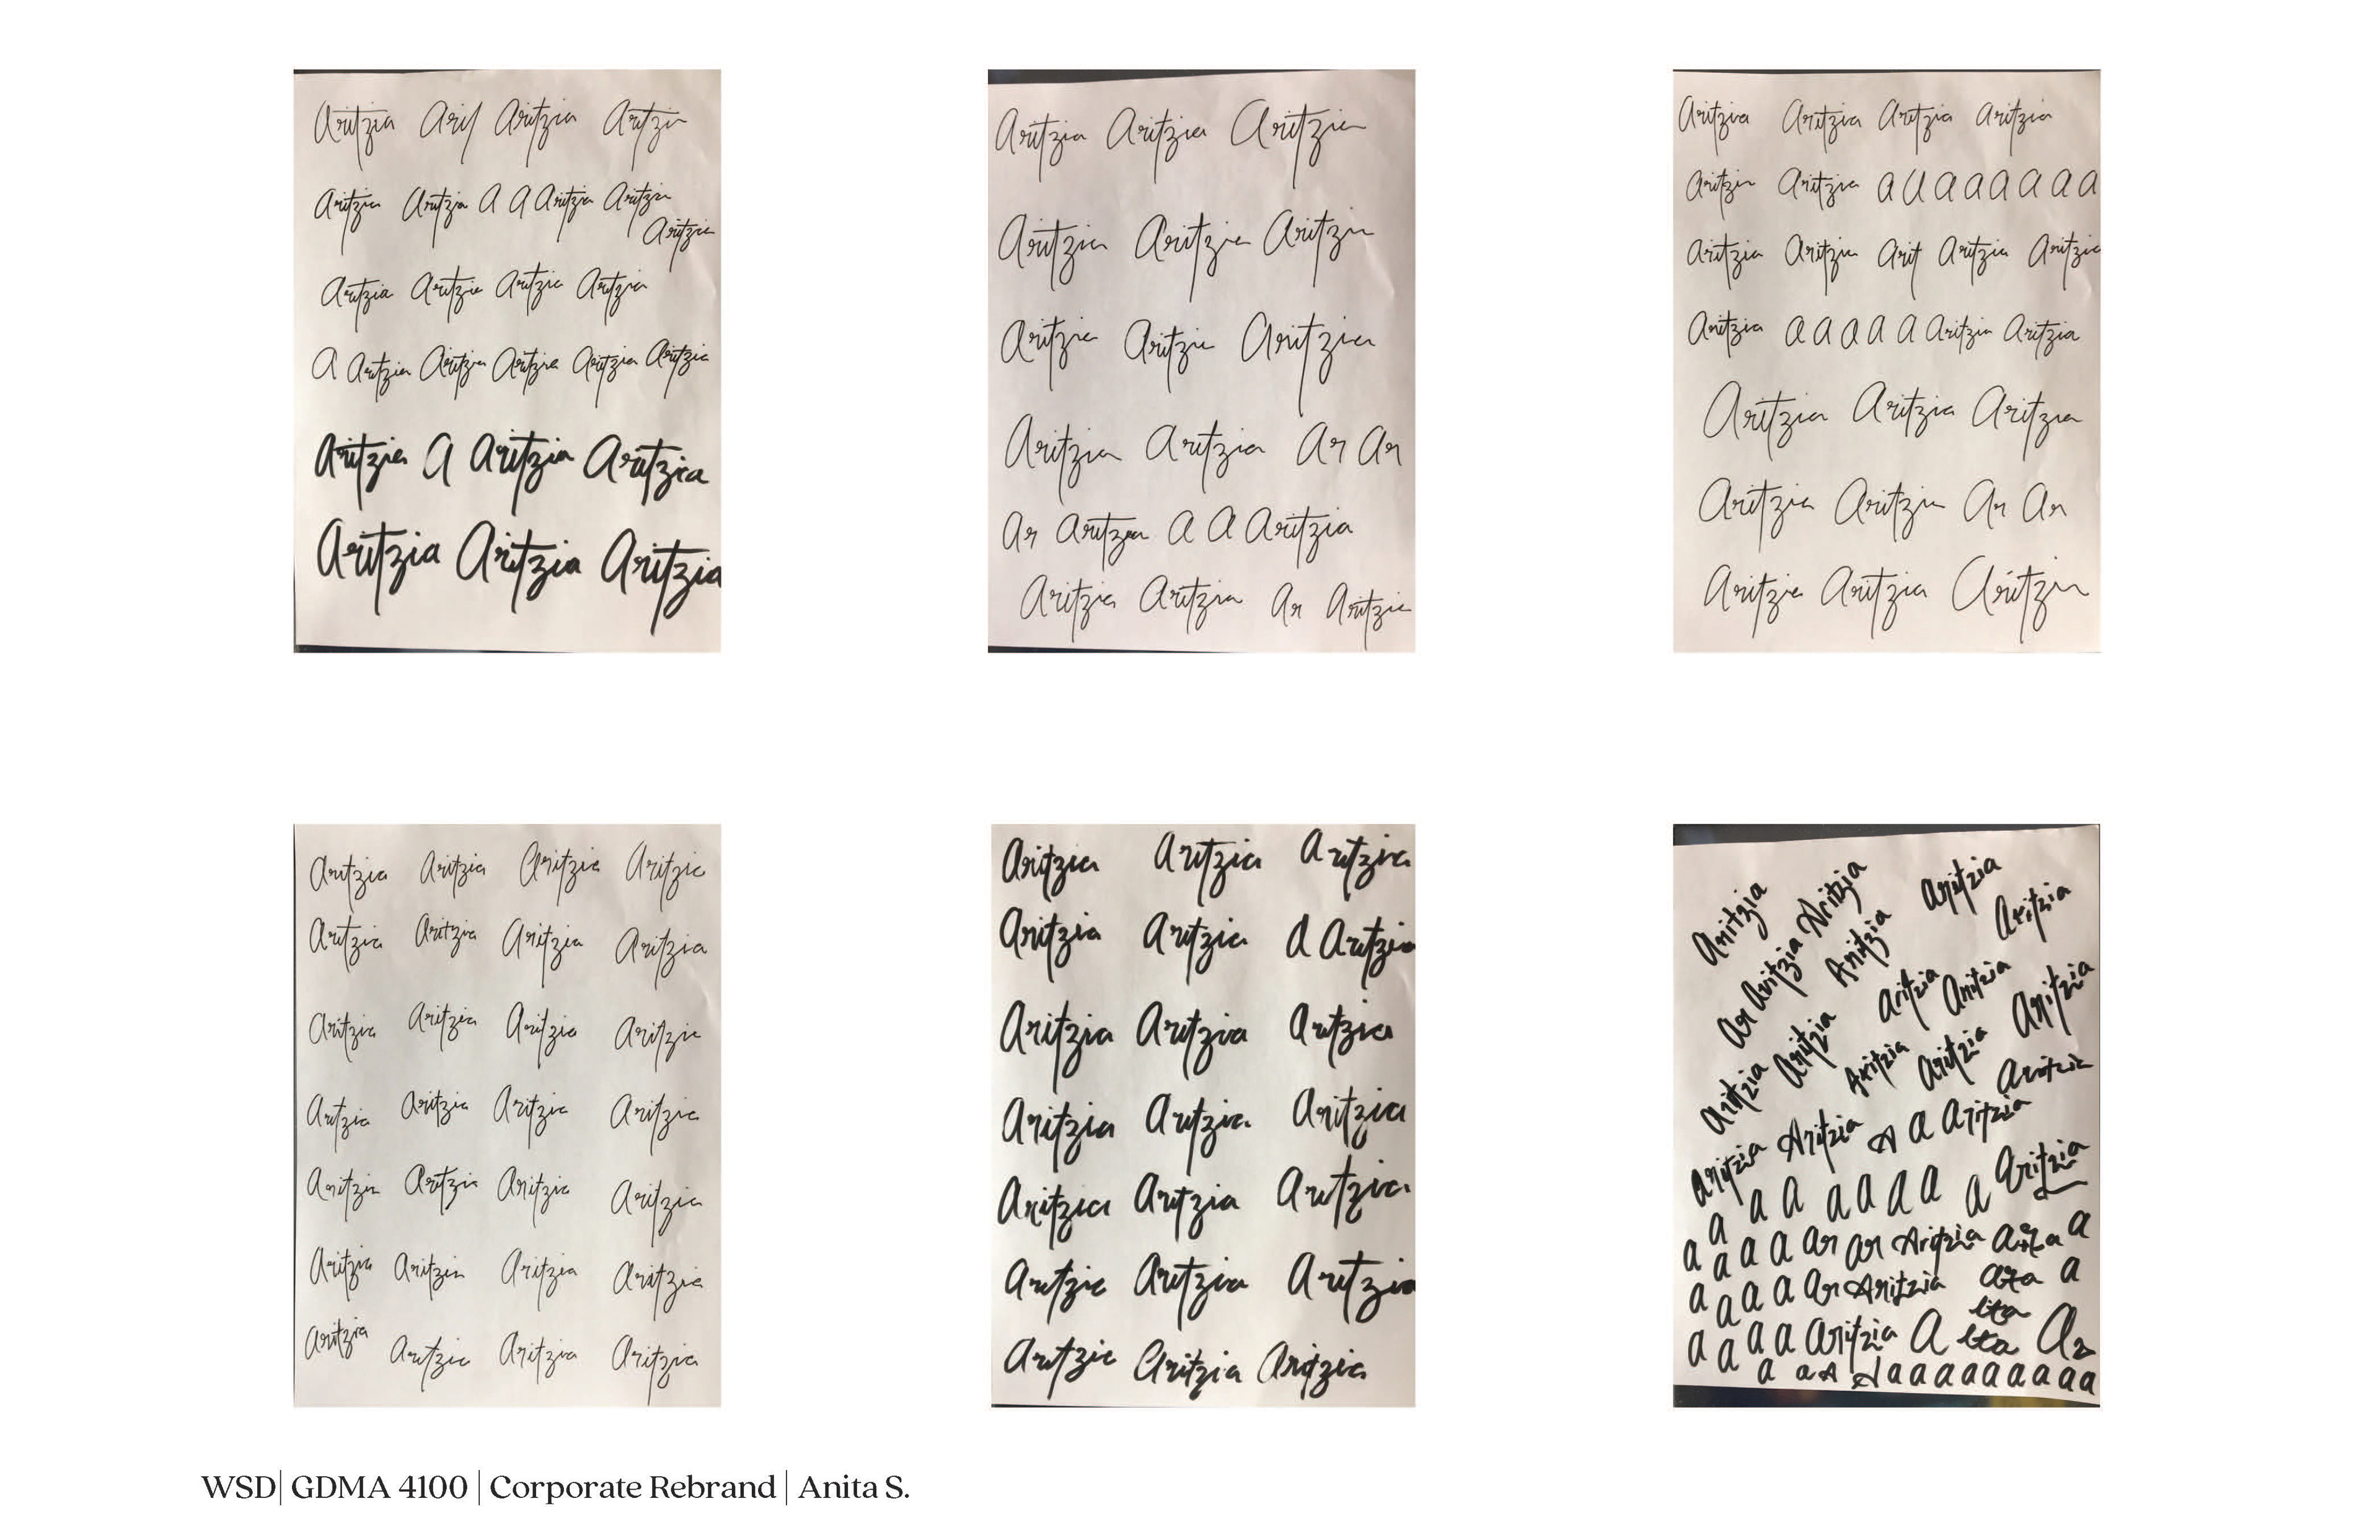 Aritzia Ari Aritzia Aritzia
Aritzia Aritzia A A Aritzia Aritzia
Aritzia
Aritzia Aritzia Aritzia Aritzia
A Aritzia Aritzia Aritzia Aritzia Aritzia
Aritzia A Aritzia Aritzia
Aritzia Aritzia Aritzia
Aritzia Aritzia Aritzia
Aritzia Aritzia Aritzia
Aritzia Aritzia Aritzia
Aritzia Aritzia Ar Ar
Ar Aritzia A A Aritzia
Aritzia Aritzia Ar Aritzia
Aritzia Aritzia Aritzia Aritzia
Aritzia Aritzia a a a a a a a a
Aritzia Aritzia Arit Aritzia Aritzia
Aritzia a a a a a Aritzia Aritzia
Aritzia Aritzia Aritzia
Aritzia Aritzia Ar Ar
Aritzia Aritzia Aritzia
Aritzia Aritzia Aritzia Aritzia
Aritzia Aritzia Aritzia Aritzia
Aritzia Aritzia Aritzia Aritzia
Aritzia Aritzia Aritzia Aritzia
Aritzia Aritzia Aritzia Aritzia
Aritzia Aritzia Aritzia Aritzia
Aritzia Aritzia Aritzia Aritzia
Aritzia Aritzia Aritzia
Aritzia Aritzia A Aritzia
Aritzia Aritzia Aritzia
Aritzia Aritzia Aritzia
Aritzia Aritzia Aritzia
Aritzia Aritzia Aritzia
Aritzia Aritzia Aritzia
Aritzia Aritzia Aritzia Aritzia
Ar Aritzia Aritzia Aritzia
Aritzia Aritzia Aritzia Aritzia
Aritzia Aritzia Aritzia Aritzia
Aritzia Aritzia A a Aritzia
a a a a a a a a Aritzia
a a a a ar ar Aritzia a
a a a a ar Aritzia a
a a a a Aritzia A
a a A A a a a a a a a a a
WSD| GDMA 4100 | Corporate Rebrand | Anita S.